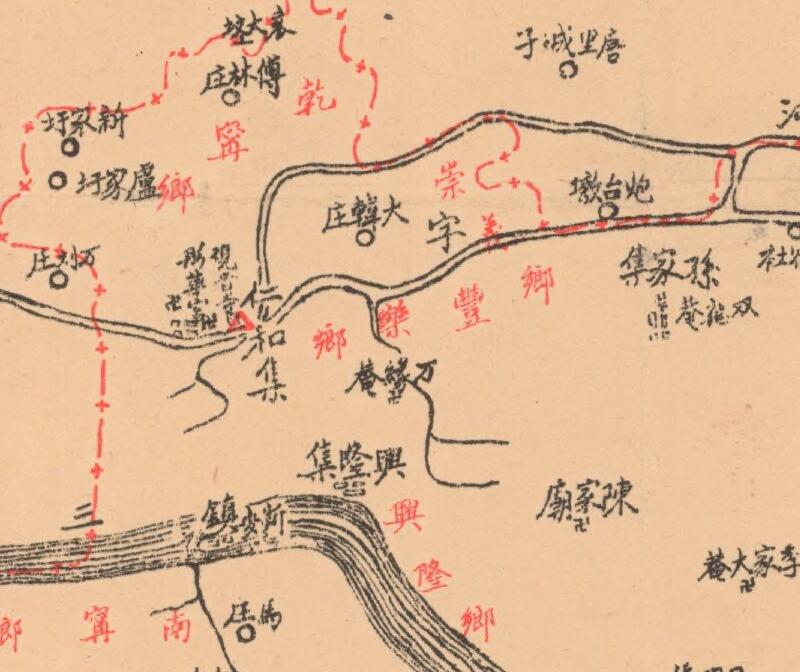 傅林庄
唐里城子
乾寧鄉
新家圩
盧家圩
崇義鄉
大韓庄
字
炮台墩
万刘庄
孫家集
双龍菴
觀音堂
仁和集
豐樂鄉
万緣菴
興隆集
三
興隆鄉
陳家廟
李家大菴
南寧鄉
馬庄